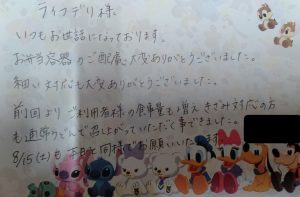 ライフデリ様
いつもお世話になっております。
お弁当容器のご配慮、大変ありがとうございました。
細い対応も大変ありがとうございました。
前回より ご利用者様の食事量も増え きざみ対応の方
も通常うどんで召し上がっていただく事ができました。
8/15(土)も 同様でお願いいたします